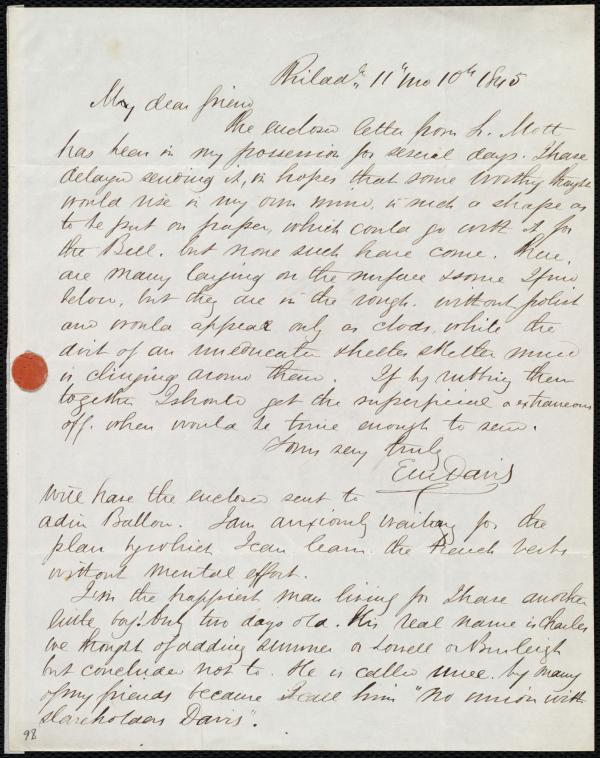 Philada. 11" mo 10th 1845
My dear friend
The enclosed letter from L. Mott
has been in my possession for several days. I have
delayed sending it, in hopes that some worthy thought
would rise in my own mind, in such a shape as
to be put on paper, which could go with it, for
the Bell. but none such have come. There
are many laying on the surface & some I find
below, but they are in the rough. without polish
and would appear only as clods, while the
dirt of an uneducated skelter mind
is clinging around them. If by rubbing them
together I should get the superficial & extraneous
off. when would be time enough to send.
Yours very truly
EM Davis
Will have the enclosed sent to
Adin Ballou. I am anxiously waiting for the
plan by which I can learn the French verbs
without mental effort.
I'm the happiest man living for I have another
little boy. but two days old. His real name is Charles
we thought of adding Sumner or Lowell or Burleigh
but concluded not to. He is called by many
of my friends because I call him "No union with
slaveholders Davis".
98